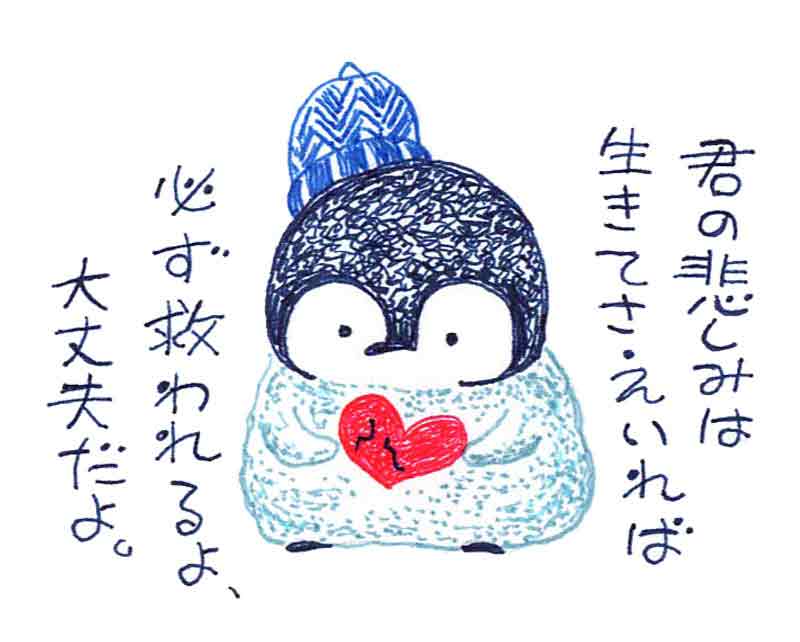 君の悲しみは
生きてさえいれば
必ず救われるよ、
大丈夫だよ。